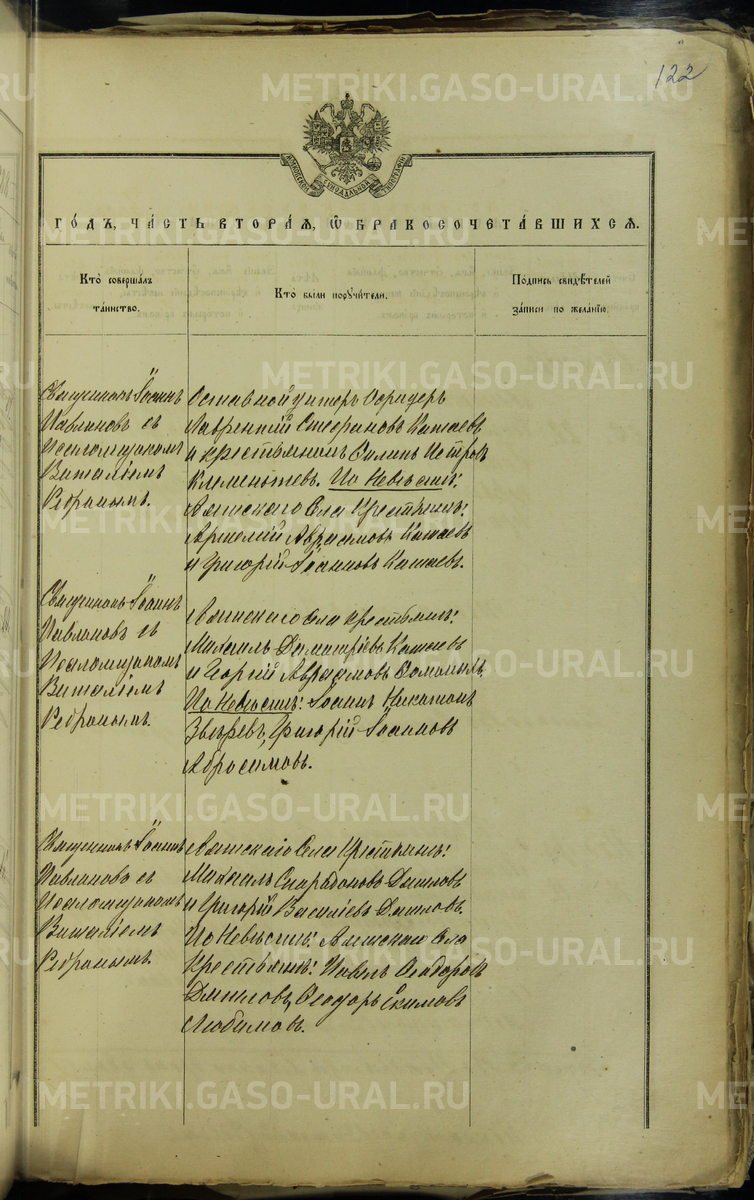 122
МОСКОВСКОЙ СУНОДАЛЬНОЙ ТИПОГРАФІИ
ГО́ДЪ, ЧА́СТЬ ВТОРА́Я, Ѡ҆ БРАКОСОЧЕТА́ВШИХСЯ.
Кто̀ соверша́лъ
та́инство.
Кто̀ бы́ли порꙋчи́тели.
По́дпись свидѣ́телей
за́писи по жела́нїю.
Священникъ Іоаннъ
Павлиновъ съ
Псаломщикомъ
Виталіемъ
Ребринымъ.
Оставной унтеръ Офицеръ
Лаврентій Стефановъ Катаевъ
и крестьянинъ Филипъ Петровъ
Клементьевъ. По Невѣстѣ:
Аятскаго Села Крестьяне:
Артемій Аврамовъ Катаевъ
и Григорій Іоанновъ Катаевъ.
Священникъ Іоаннъ
Павлиновъ съ
Псаломщикомъ
Виталіемъ
Ребринымъ.
Аятскаго Села крестьяне:
Михаилъ Димитріевъ Катаевъ
и Георгій Аврамовъ
По Невѣстѣ: Іоаннъ
Звѣревъ, Григорій Іоакимовъ
Абросимовъ.
Священникъ Іоаннъ
Павлиновъ съ
Псаломщикомъ
Виталіемъ
Ребринымъ.
Аятскаго Села Крестьяне:
Михаилъ Спиридоновъ Даниловъ
и Григорій Василіевъ Даниловъ.
По Невѣстѣ: Аятскаго Села
Крестьяне: Павелъ Ѳеодоровъ
Даниловъ, Ѳеодоръ Екимовъ
Любимовъ.
METRIKI.GASO-URAL.RU